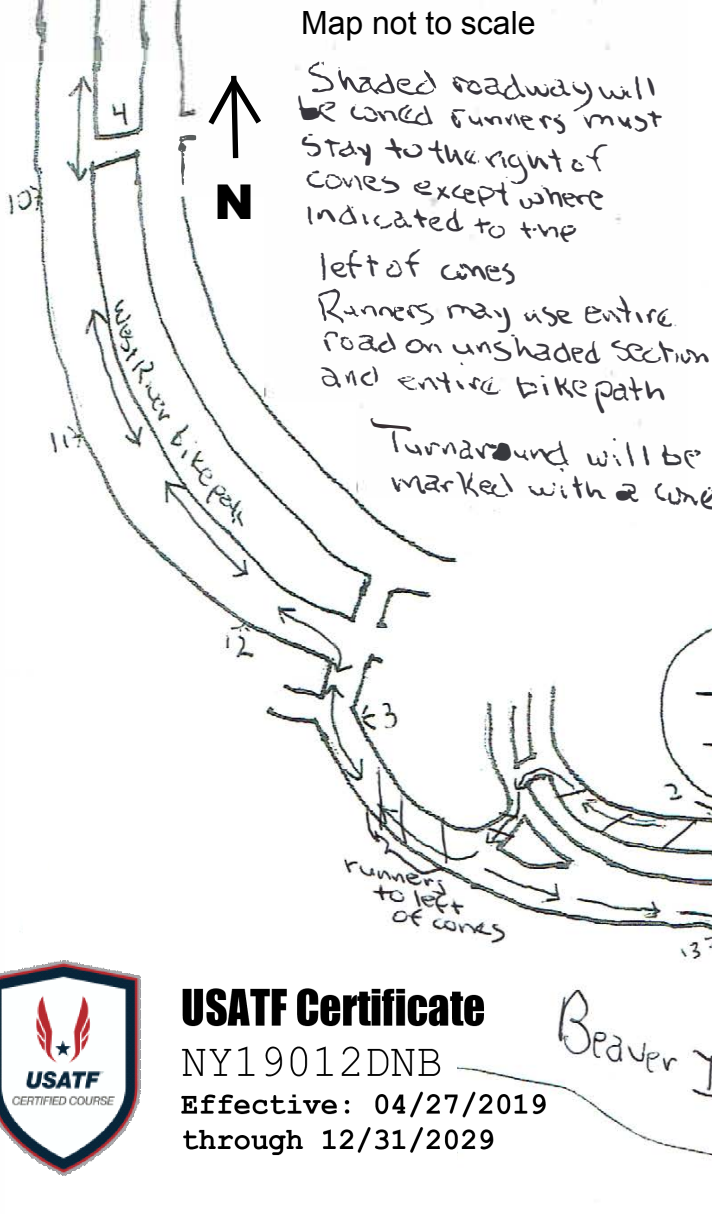 Map not to scale
Shaded roadway will
be coned runners must
stay to the right of
cones except where
indicated to the
left of cones
Runners may use entire
road on unshaded section
and entire bike path
Turnaround will be
marked with a cone
N
4
10
West River bike path
11
12
3
2
runners
to left
of cones
13
Beaver I
USATF Certificate
NY19012DNB
Effective: 04/27/2019
through 12/31/2029
USATF
CERTIFIED COURSE